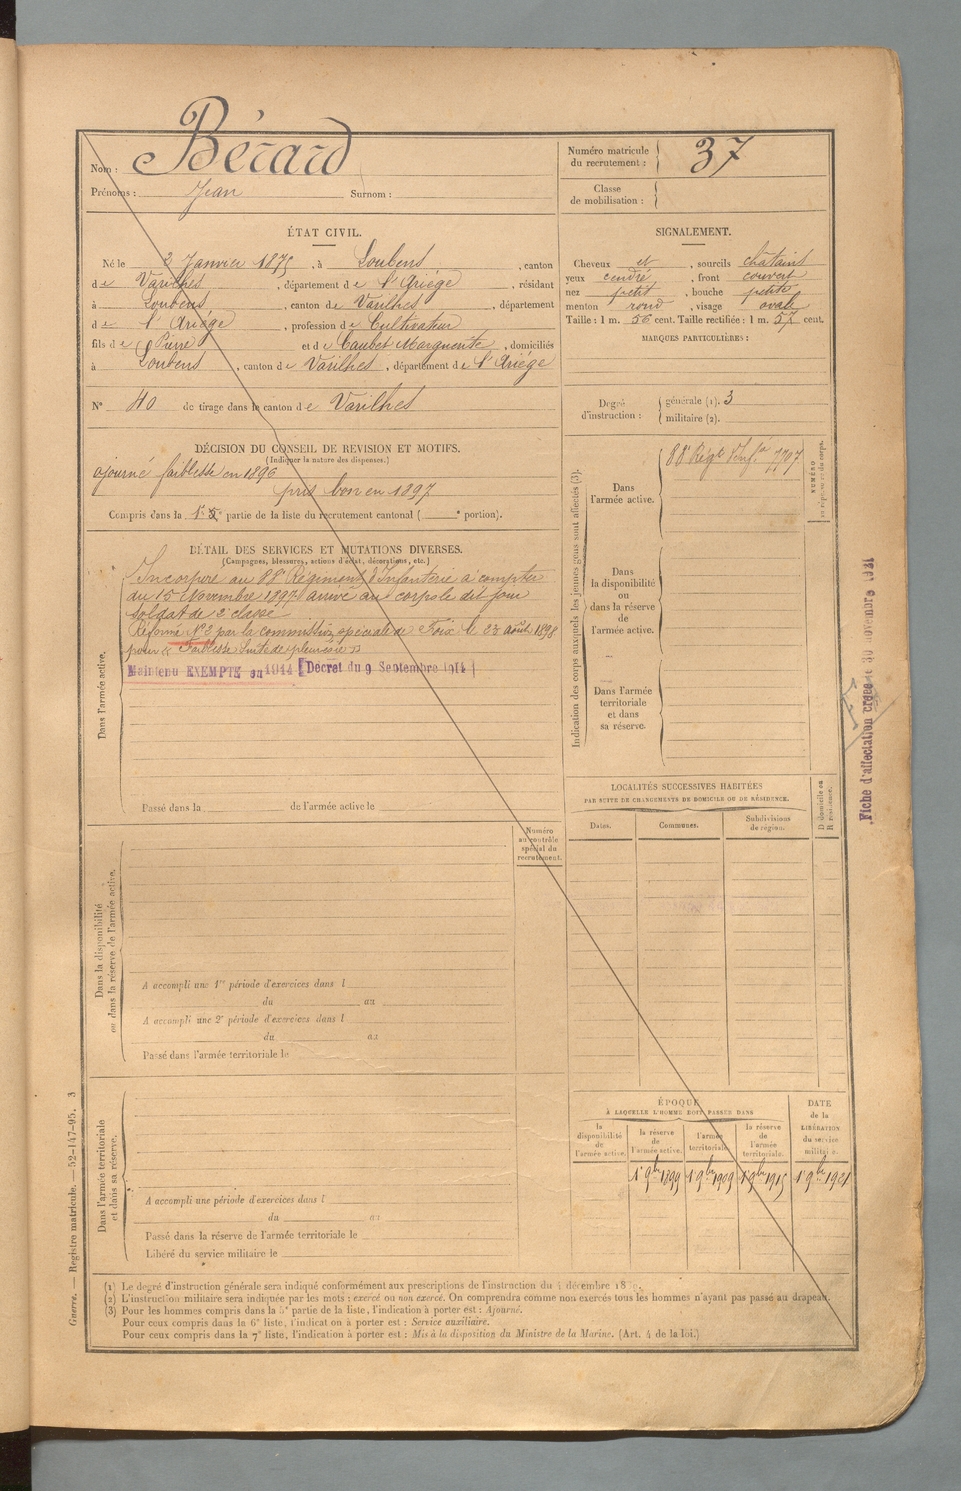 Nom : Bérard
Prénoms : Jean Surnom :
Numéro matricule du recrutement : 37
Classe de mobilisation :
ÉTAT CIVIL.
Né le 2 Janvier 1875, à Loubens, canton
de Varilhes, département de l'Ariège, résidant
à Loubens, canton de Varilhes, département
de l'Ariège, profession de Cultivateur
fils de Pierre et de Caubet Marguerite, domiciliés
à Loubens, canton de Varilhes, département de l'Ariège
N° 40 de tirage dans le canton de Varilhes
SIGNALEMENT.
Cheveux et, sourcils châtains
yeux cendré, front couvert
nez petit, bouche petite
menton rond, visage ovale
Taille : 1 m. 56 cent. Taille rectifiée : 1 m. 57 cent.
MARQUES PARTICULIÈRES :
Degré d'instruction : générale (1). 3
militaire (2).
DÉCISION DU CONSEIL DE REVISION ET MOTIFS.
(Indiquer la nature des dispenses.)
ajourné faiblesse en 1896
pris bon en 1897
Compris dans la 1e partie de la liste du recrutement cantonal ( e portion).
DÉTAIL DES SERVICES ET MUTATIONS DIVERSES.
(Campagnes, blessures, actions d'éclat, décorations, etc.)
Dans l'armée active.
Incorporé au 88e Régiment d'Infanterie à compter
du 15 Novembre 1897 arrivé au corps le dit jour
soldat de 2e classe
Réformé N°2 par la commission spéciale de Foix le 23 août 1898
pour « Faiblesse suite de pleurésie »
Maintenu EXEMPTÉ en 1914 [Décret du 9 Septembre 1914]
Passé dans la de l'armée active le
Numéro au contrôle spécial du recrutement.
Dans la disponibilité
ou dans la réserve de l'armée active.
A accompli une 1re période d'exercices dans l
du au
A accompli une 2e période d'exercices dans l
du au
Passé dans l'armée territoriale le
Dans l'armée territoriale
et dans sa réserve.
A accompli une période d'exercices dans l
du au
Passé dans la réserve de l'armée territoriale le
Libéré du service militaire le
Indication des corps auxquels les jeunes gens sont affectés (3).
NUMÉRO
au répertoire du corps.
Dans l'armée active.
88e Régt d'Infie
Dans la disponibilité ou dans la réserve de l'armée active.
Dans l'armée territoriale et dans sa réserve.
LOCALITÉS SUCCESSIVES HABITÉES
PAR SUITE DE CHANGEMENTS DE DOMICILE OU DE RÉSIDENCE.
D domicile ou R résidence.
Dates. Communes. Subdivisions de région.
ÉPOQUE
À LAQUELLE L'HOMME DOIT PASSER DANS
DATE de la LIBÉRATION du service militaire.
la disponibilité de l'armée active.
la réserve de l'armée active.
l'armée territoriale.
la réserve de l'armée territoriale.
1r 9bre 1899 1r 9bre 1909 1r 9bre 1915 1r 9bre 1921
Fiche d'affectation créée le 30 novembre 1921
(1) Le degré d'instruction générale sera indiqué conformément aux prescriptions de l'instruction du 4 décembre
(2) L'instruction militaire sera indiquée par les mots : exercé ou non exercé. On comprendra comme non exercés tous les hommes n'ayant pas passé au drapeau.
(3) Pour les hommes compris dans la 5e partie de la liste, l'indication à porter est : Ajourné.
Pour ceux compris dans la 6e liste, l'indication à porter est : Service auxiliaire.
Pour ceux compris dans la 7e liste, l'indication à porter est : Mis à la disposition du Ministre de la Marine. (Art. 4 de la loi.)
Guerre. — Registre matricule. — 52-147-95. 3